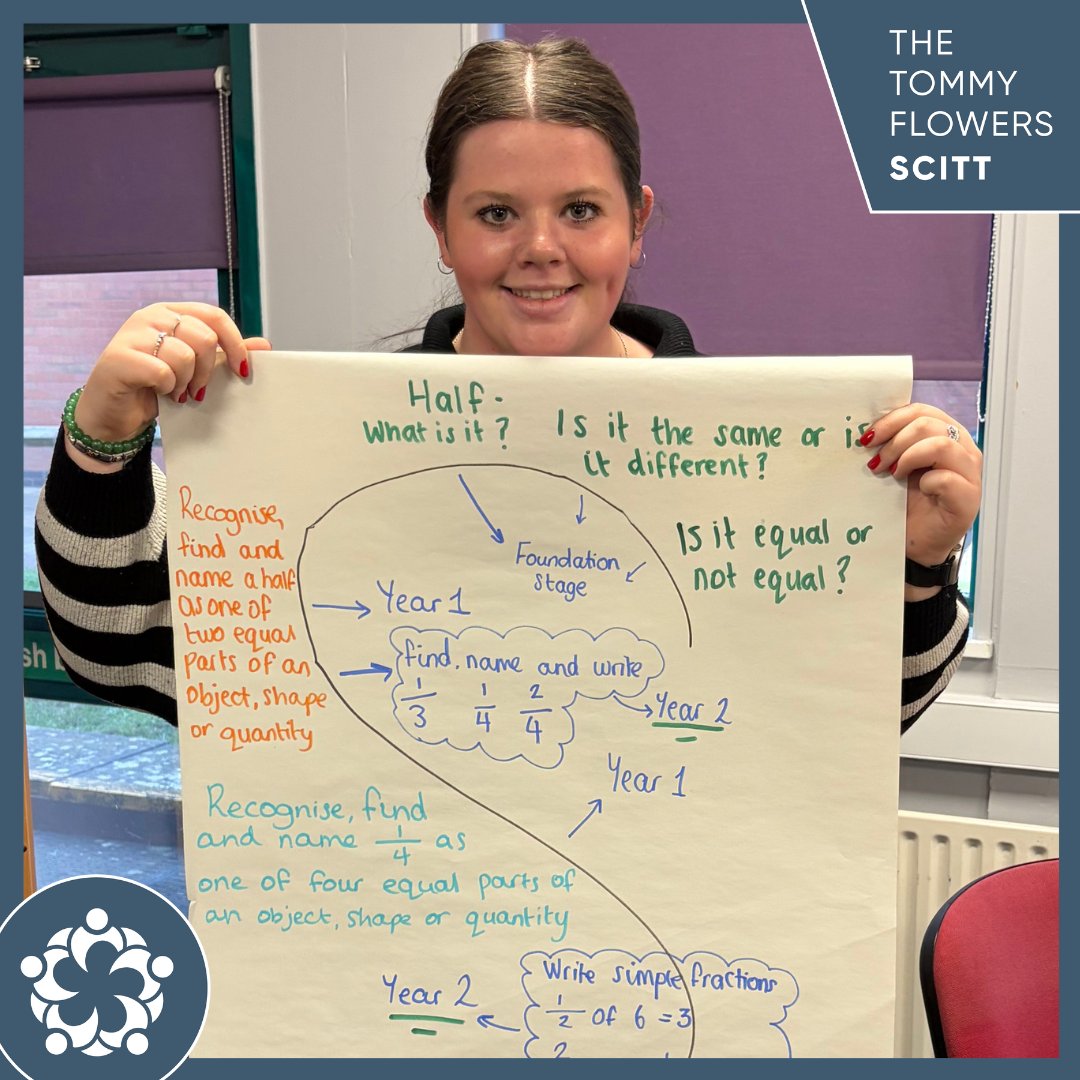 THE
TOMMY
FLOWERS
SCITT
Half -
What is it?
Is it the same or is
it different?
Is it equal or
not equal?
Foundation
Stage
Recognise,
find and
name a half
as one of
two equal
parts of an
object, shape
or quantity
Year 1
find, name and write
1/3 1/4 2/4
Year 2
Year 1
Recognise, find
and name 1/4 as
one of four equal parts of
an object, shape or quantity
Year 2
Write simple fractions
1/2 of 6 = 3
2